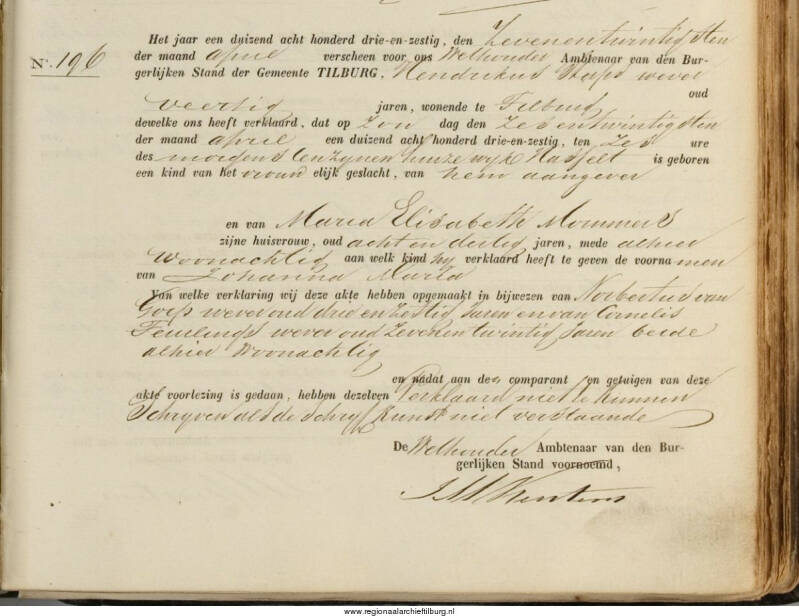 Het jaar een duizend acht honderd drie-en-zestig, den Zevenentwintigsten
der maand april verscheen voor ons Wethouder Ambtenaar van den Bur-
N°. 196
gerlijken Stand der Gemeente TILBURG, Hendrikus Staps wever
oud
veertig jaren, wonende te Tilburg
dewelke ons heeft verklaard, dat op Zon dag den Zesentwintigsten
der maand april een duizend acht honderd drie-en-zestig, ten Zes ure
des morgens tenzynen huize wyk Hasselt is geboren
een kind van het vrouw elijk geslacht, van hem aangever
en van Maria Elisabeth Mommers
zijne huisvrouw, oud achtendertig jaren, mede alhier
Woonachtig aan welk kind hy verklaard heeft te geven de voorna men
van Johanna Maria
Van welke verklaring wij deze akte hebben opgemaakt in bijwezen van Norbertus van
wever oud drie en zestig Jaren en van Cornelis
wever oud Zevenentwintig Jaren beide
alhier Woonachtig
en nadat aan den comparant en getuigen van deze
akte voorlezing is gedaan, hebben dezelven Verklaard niet te kunnen
Schryven als de Schryf Kunst niet verstaande
De Wethouder Ambtenaar van den Bur-
gerlijken Stand voornoemd,
www.regionaalarchieftilburg.nl